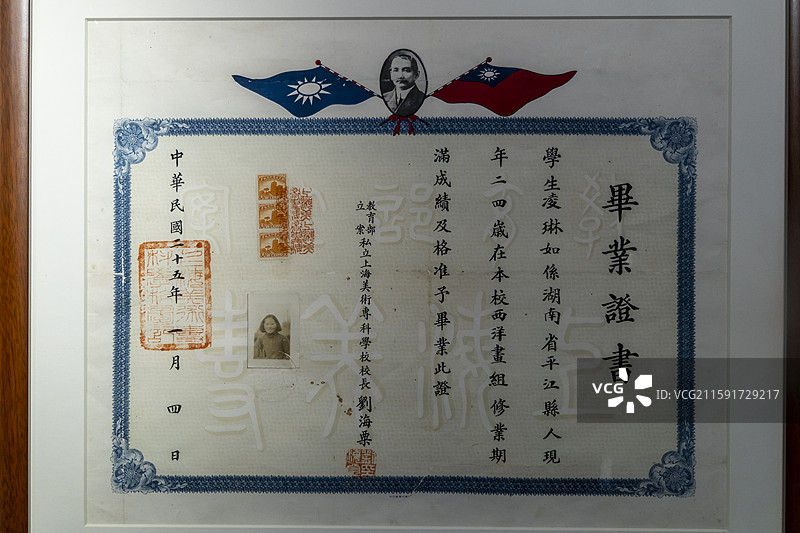 畢業證書
學生凌琳如係湖南省平江縣人現
年二四歲在本校西洋畫組修業期
滿成績及格准予畢業此證
教育部立案私立上海美術專科學校校長劉海粟
中華民國二十五年一月四日
VCG
ID: VCG211591729217